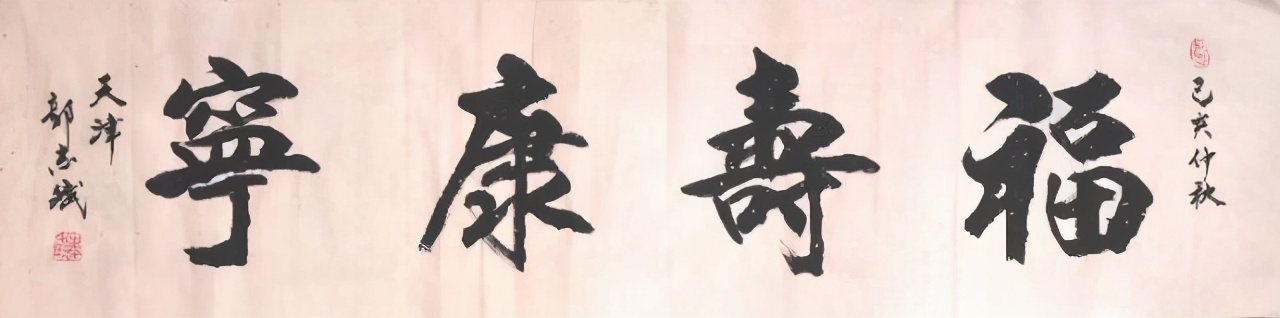 己亥仲秋
福壽康寧
天津
郭志斌